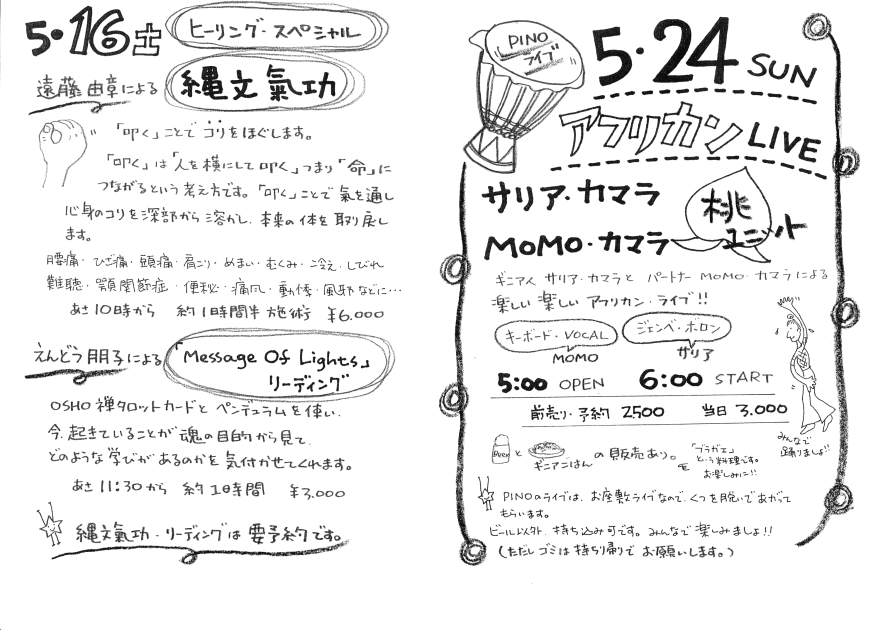 5・16土
ヒーリング・スペシャル
遠藤由章による
縄文氣功
「叩く」ことでコリをほぐします。
「叩く」は「人を横にして叩く」つまり「命」に
つながるという考え方です。「叩く」ことで氣を通し
心身のコリを深部から溶かし、本来の体を取り戻し
ます。
腰痛・ひざ痛・頭痛・肩こり・めまい・むくみ・冷え・しびれ
難聴・顎関節症・便秘・痛風・動悸・風邪などに…
あさ10時から 約1時間半施術 ¥6.000
えんどう朋子による
「Message Of Lights」
リーディング
OSHO禅タロットカードとペンデュラムを使い、
今、起きていることが魂の目的から見て、
どのような学びがあるのかを気付かせてくれます。
あさ11:30から 約1時間 ¥3,000
縄文氣功・リーディングは要予約です。
PINO
ライブ
5・24 SUN
アフリカンLIVE
サリア・カマラ
MOMO・カマラ
桃
ユニット
ギニア人 サリア・カマラと パートナー MOMO・カマラによる
楽しい楽しいアフリカン・ライブ!!
キーボード・VOCAL
MOMO
ジェンベ・ボロン
サリア
5:00 OPEN 6:00 START
前売り・予約 2500 当日 3.000
Beer
と
ギニアごはん
の販売あり。
「ブラガエ」
という料理です。
お楽しみに!!
みんなで
踊りましょ!!
PINOのライブは、お座敷ライブなので、くつを脱いであがって
もらいます。
ビール以外、持ち込み可です。みんなで楽しみましょ!!
(ただしゴミは持ち帰りでお願いします。)